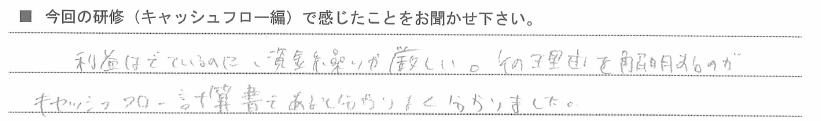 ■ 今回の研修(キャッシュフロー編)で感じたことをお聞かせ下さい。
利益はでているのに、資金繰りが厳しい。その理由を解明するのが
キャッシュフロー計算書であると分かりよく分かりました。